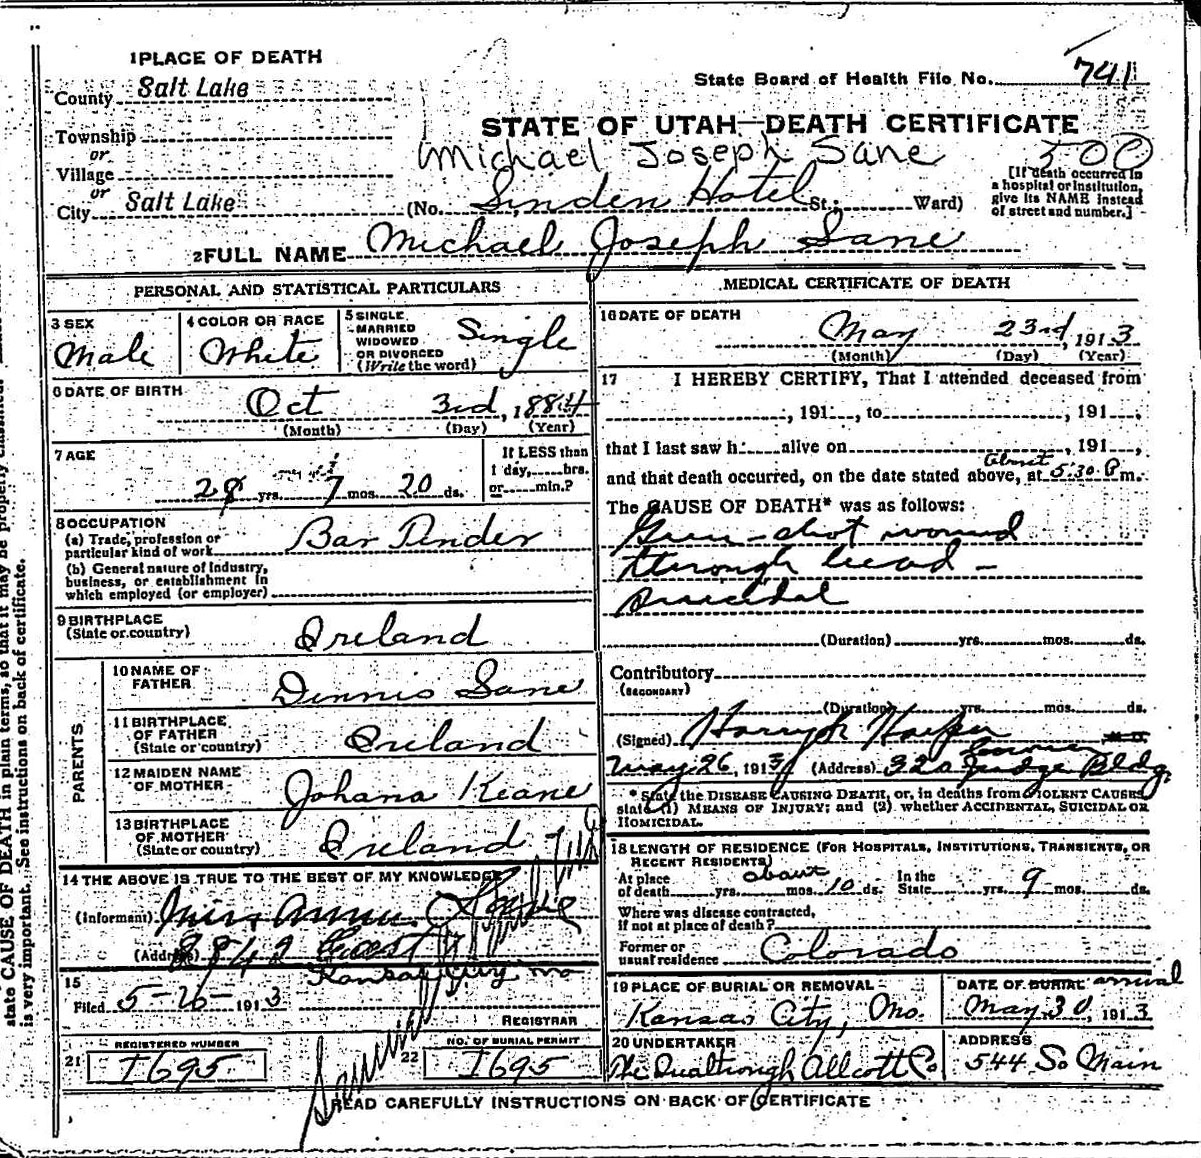 1 PLACE OF DEATH
County Salt Lake
Township
or
Village
or
City Salt Lake
State Board of Health File No. 741
STATE OF UTAH—DEATH CERTIFICATE
Michael Joseph Sane 500
(No. Sinden Hotel St.; Ward)
[If death occurred in
a hospital or institution,
give its NAME instead
of street and number.]
2 FULL NAME Michael Joseph Sane
PERSONAL AND STATISTICAL PARTICULARS
3 SEX
Male
4 COLOR OR RACE
White
5 SINGLE,
MARRIED
WIDOWED
OR DIVORCED
(Write the word)
Single
6 DATE OF BIRTH
Oct 3rd, 1884
(Month) (Day) (Year)
7 AGE
28 yrs. 7 mos. 20 ds.
If LESS than
1 day, hrs.
or min.?
8 OCCUPATION
(a) Trade, profession or
particular kind of work Bar Tinder
(b) General nature of industry,
business, or establishment in
which employed (or employer)
9 BIRTHPLACE
(State or country)
Ireland
PARENTS
10 NAME OF
FATHER
Dennis Sane
11 BIRTHPLACE
OF FATHER
(State or country)
Ireland
12 MAIDEN NAME
OF MOTHER
Johana Keane
13 BIRTHPLACE
OF MOTHER
(State or country)
Ireland
14 THE ABOVE IS TRUE TO THE BEST OF MY KNOWLEDGE
(Informant)
(Address) East
Kansas City Mo
15
Filed 5-26-1913
REGISTRAR
21 REGISTERED NUMBER
I695
22 NO. OF BURIAL PERMIT
I695
MEDICAL CERTIFICATE OF DEATH
16 DATE OF DEATH
May 23rd, 1913
(Month) (Day) (Year)
17 I HEREBY CERTIFY, That I attended deceased from
, 191 , to , 191 ,
that I last saw h alive on , 191 ,
and that death occurred, on the date stated above, at About 5:30 P m.
The CAUSE OF DEATH* was as follows:
Gun-shot wound
through head -
suicidal
(Duration) yrs. mos. ds.
Contributory
(SECONDARY)
(Duration) yrs. mos. ds.
(Signed) Harry H Harper M.D.
Coroner
May 26, 1913 (Address) 320 Judge Bldg.
* State the DISEASE CAUSING DEATH, or, in deaths from VIOLENT CAUSES
state (1) MEANS OF INJURY; and (2) whether ACCIDENTAL, SUICIDAL OR
HOMICIDAL.
18 LENGTH OF RESIDENCE (FOR HOSPITALS, INSTITUTIONS, TRANSIENTS, OR
RECENT RESIDENTS)
At place
of death yrs. about mos. 10 ds.
In the
State yrs. 9 mos. ds.
Where was disease contracted,
if not at place of death?
Former or
usual residence Colorado
19 PLACE OF BURIAL OR REMOVAL
Kansas City, Mo.
DATE OF BURIAL arrival
May 30, 1913
20 UNDERTAKER
The Qualtrough Allcott Co
ADDRESS
544 So Main
READ CAREFULLY INSTRUCTIONS ON BACK OF CERTIFICATE
state CAUSE OF DEATH in plain terms, so that it may be properly classified.
is very important. See instructions on back of certificate.